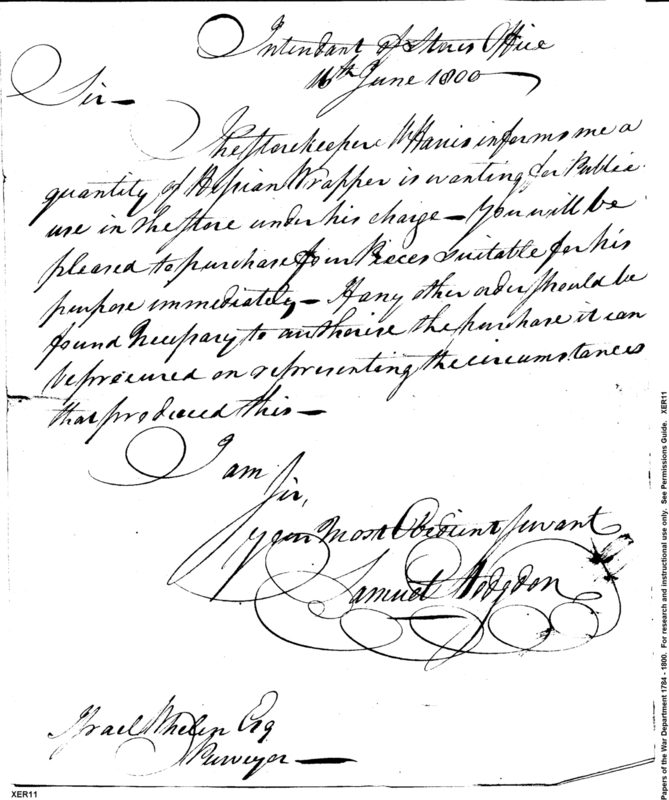 Intendant of Stores Office
16th June 1800
Sir
The Storekeeper Mr Harris informs me a
quantity of Hessian Wrapper is wanting for Public
use in the Store under his charge — You will be
pleased to purchase four Pieces suitable for his
purpose immediately — If any other order should be
found Necessary to authorise the purchase it can
be procured on representing the circumstances
that produced this —
I am
Sir,
your Most Obedient Servant
Samuel Hodgdon
Israel Whelen Esq
Purveyor
XER11
Papers of the War Department 1784 - 1800. For research and instructional use only. See Permissions Guide. XER11